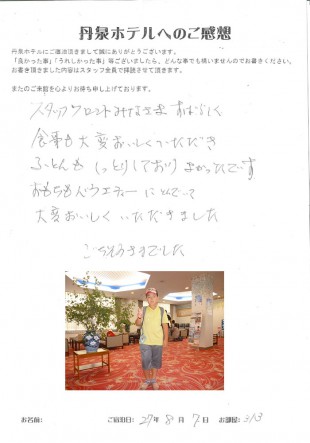 丹泉ホテルへのご感想
丹泉ホテルにご宿泊頂きまして誠にありがとうございます。
「良かった事」「うれしかった事」等ございましたら、どんな事でも構いませんのでお書きください。
お書き頂きました内容はスタッフ全員で拝読させて頂きます。
またのご来館を心よりお待ち申し上げております。
スタッフフロントみなさますばらしく
食事も大変おいしくいただき
ふとんも しっとりしており よかったです
おもちもバラエティーにとんでいて
大変おいしくいただきました
ごちそうさまでした
お名前: ご宿泊日: 27年 8月 7日 お部屋: 313